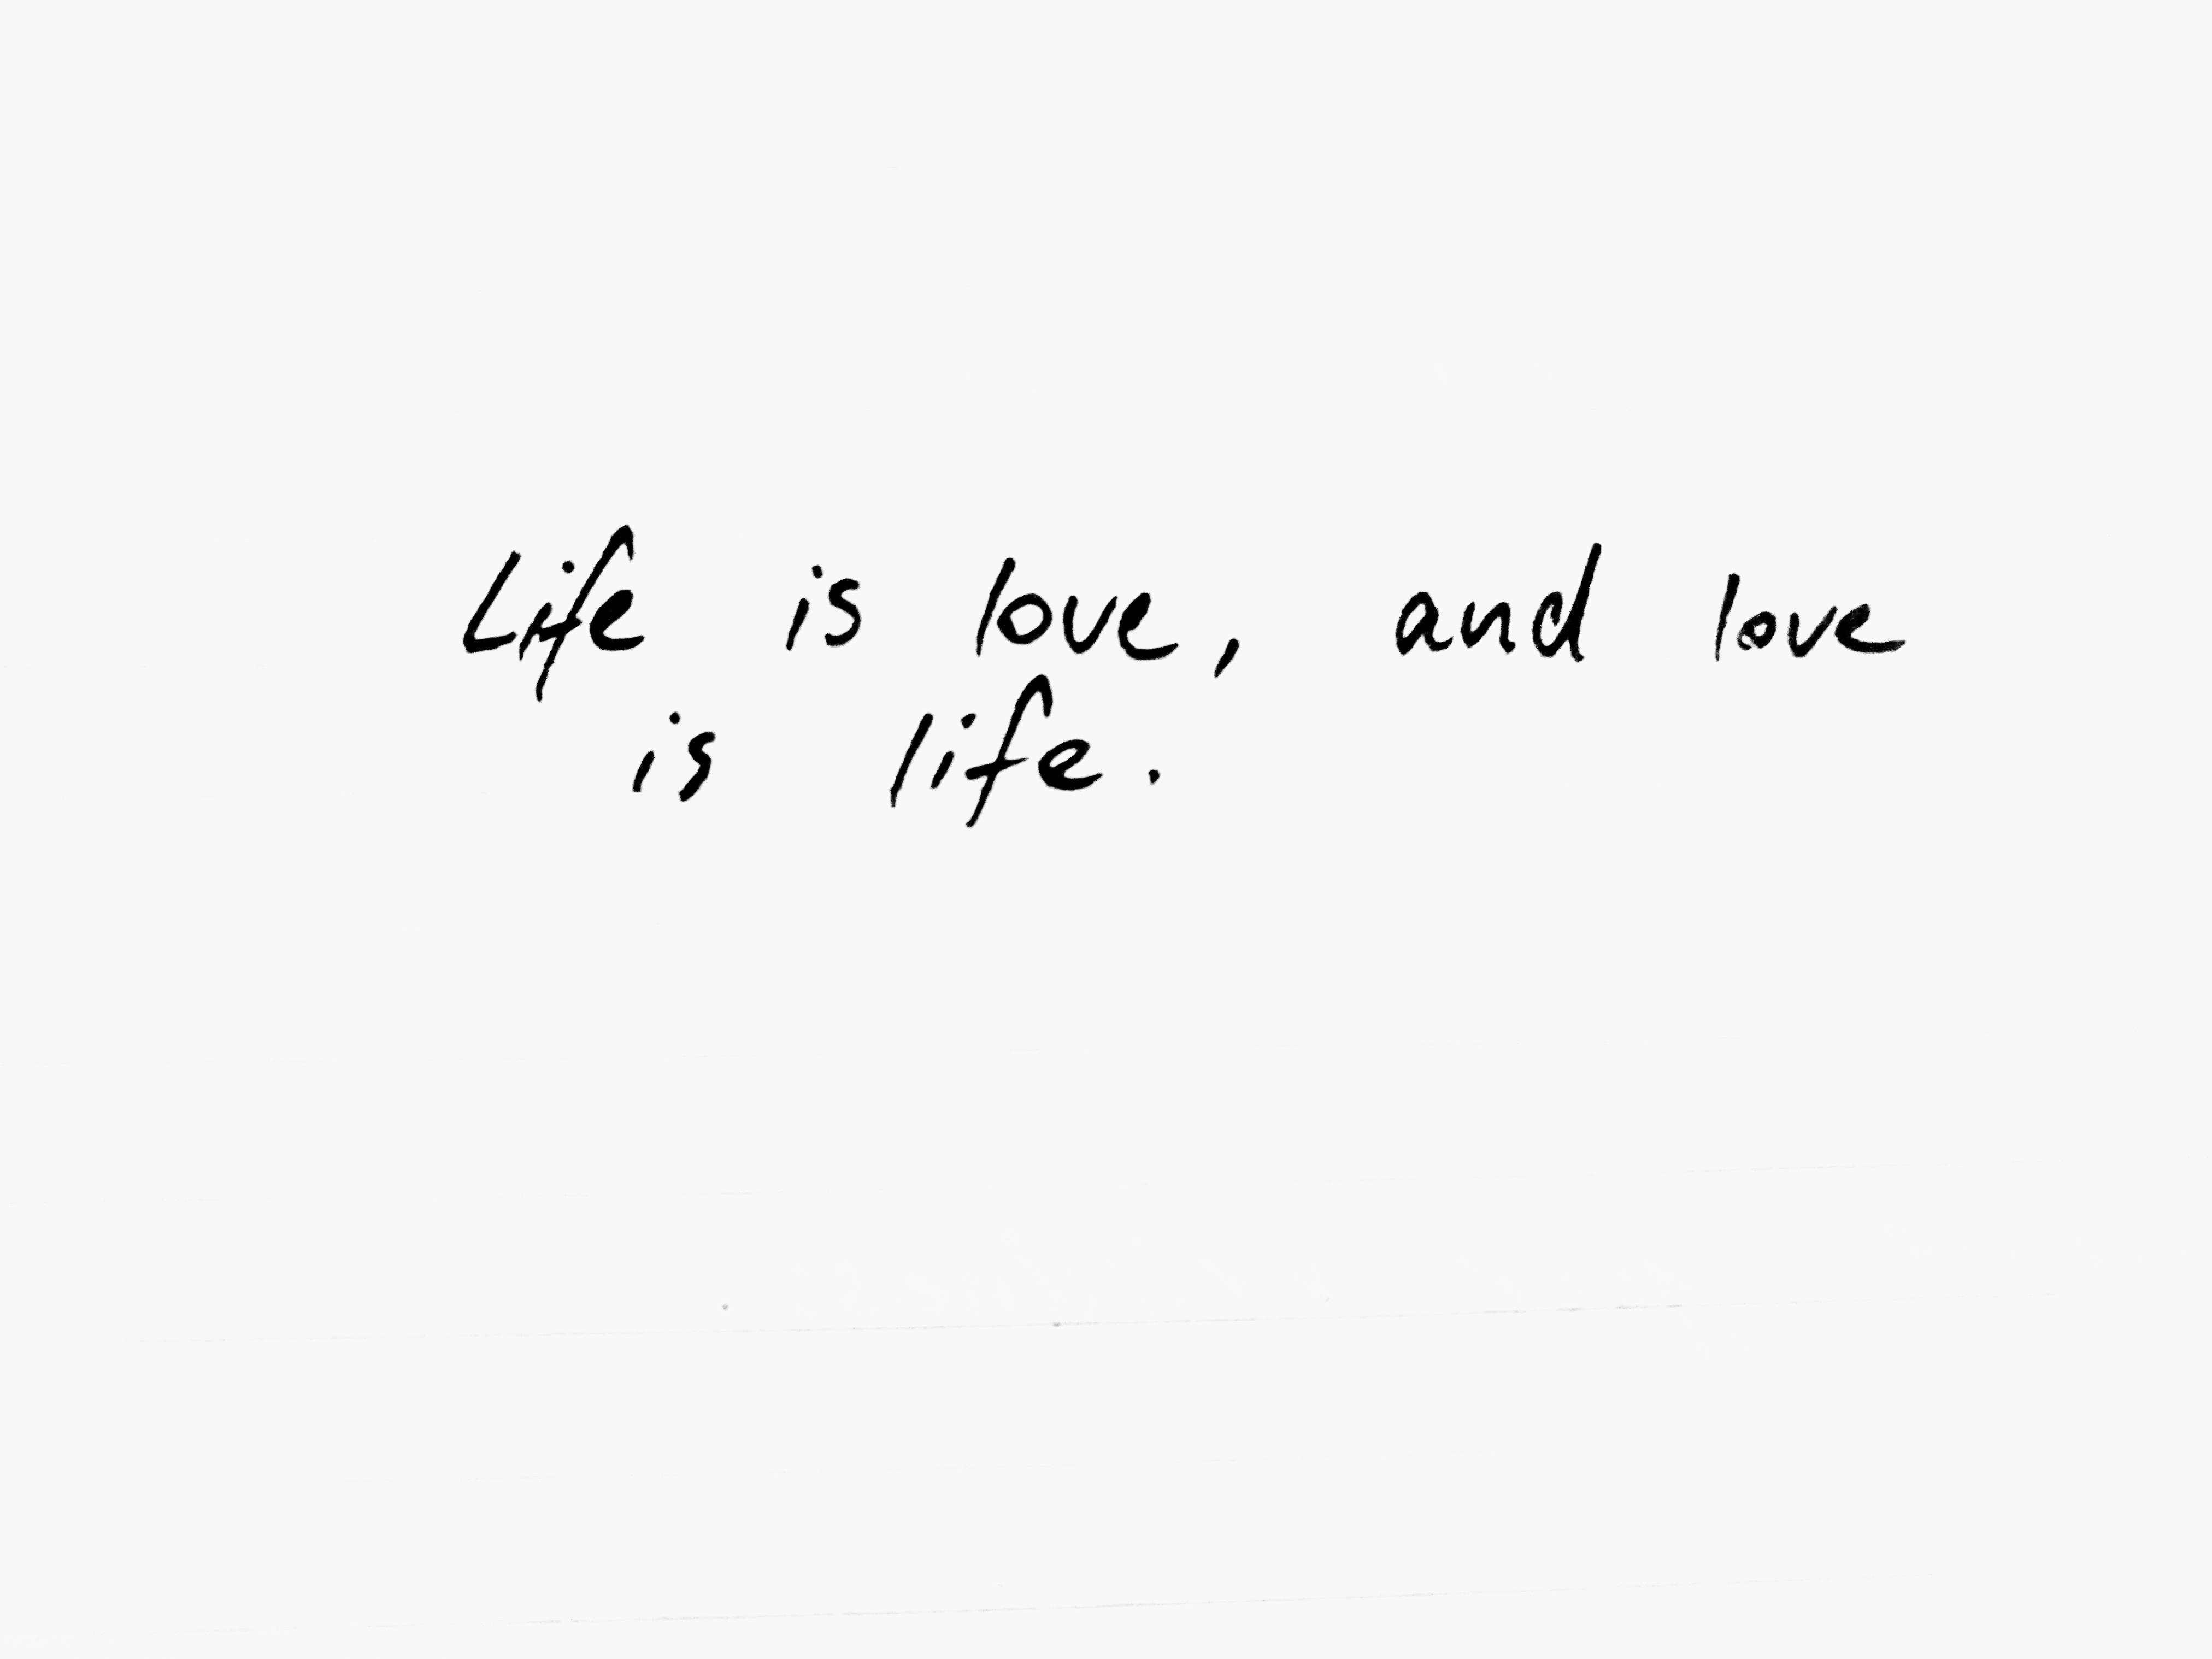 Life is love, and love
is life.